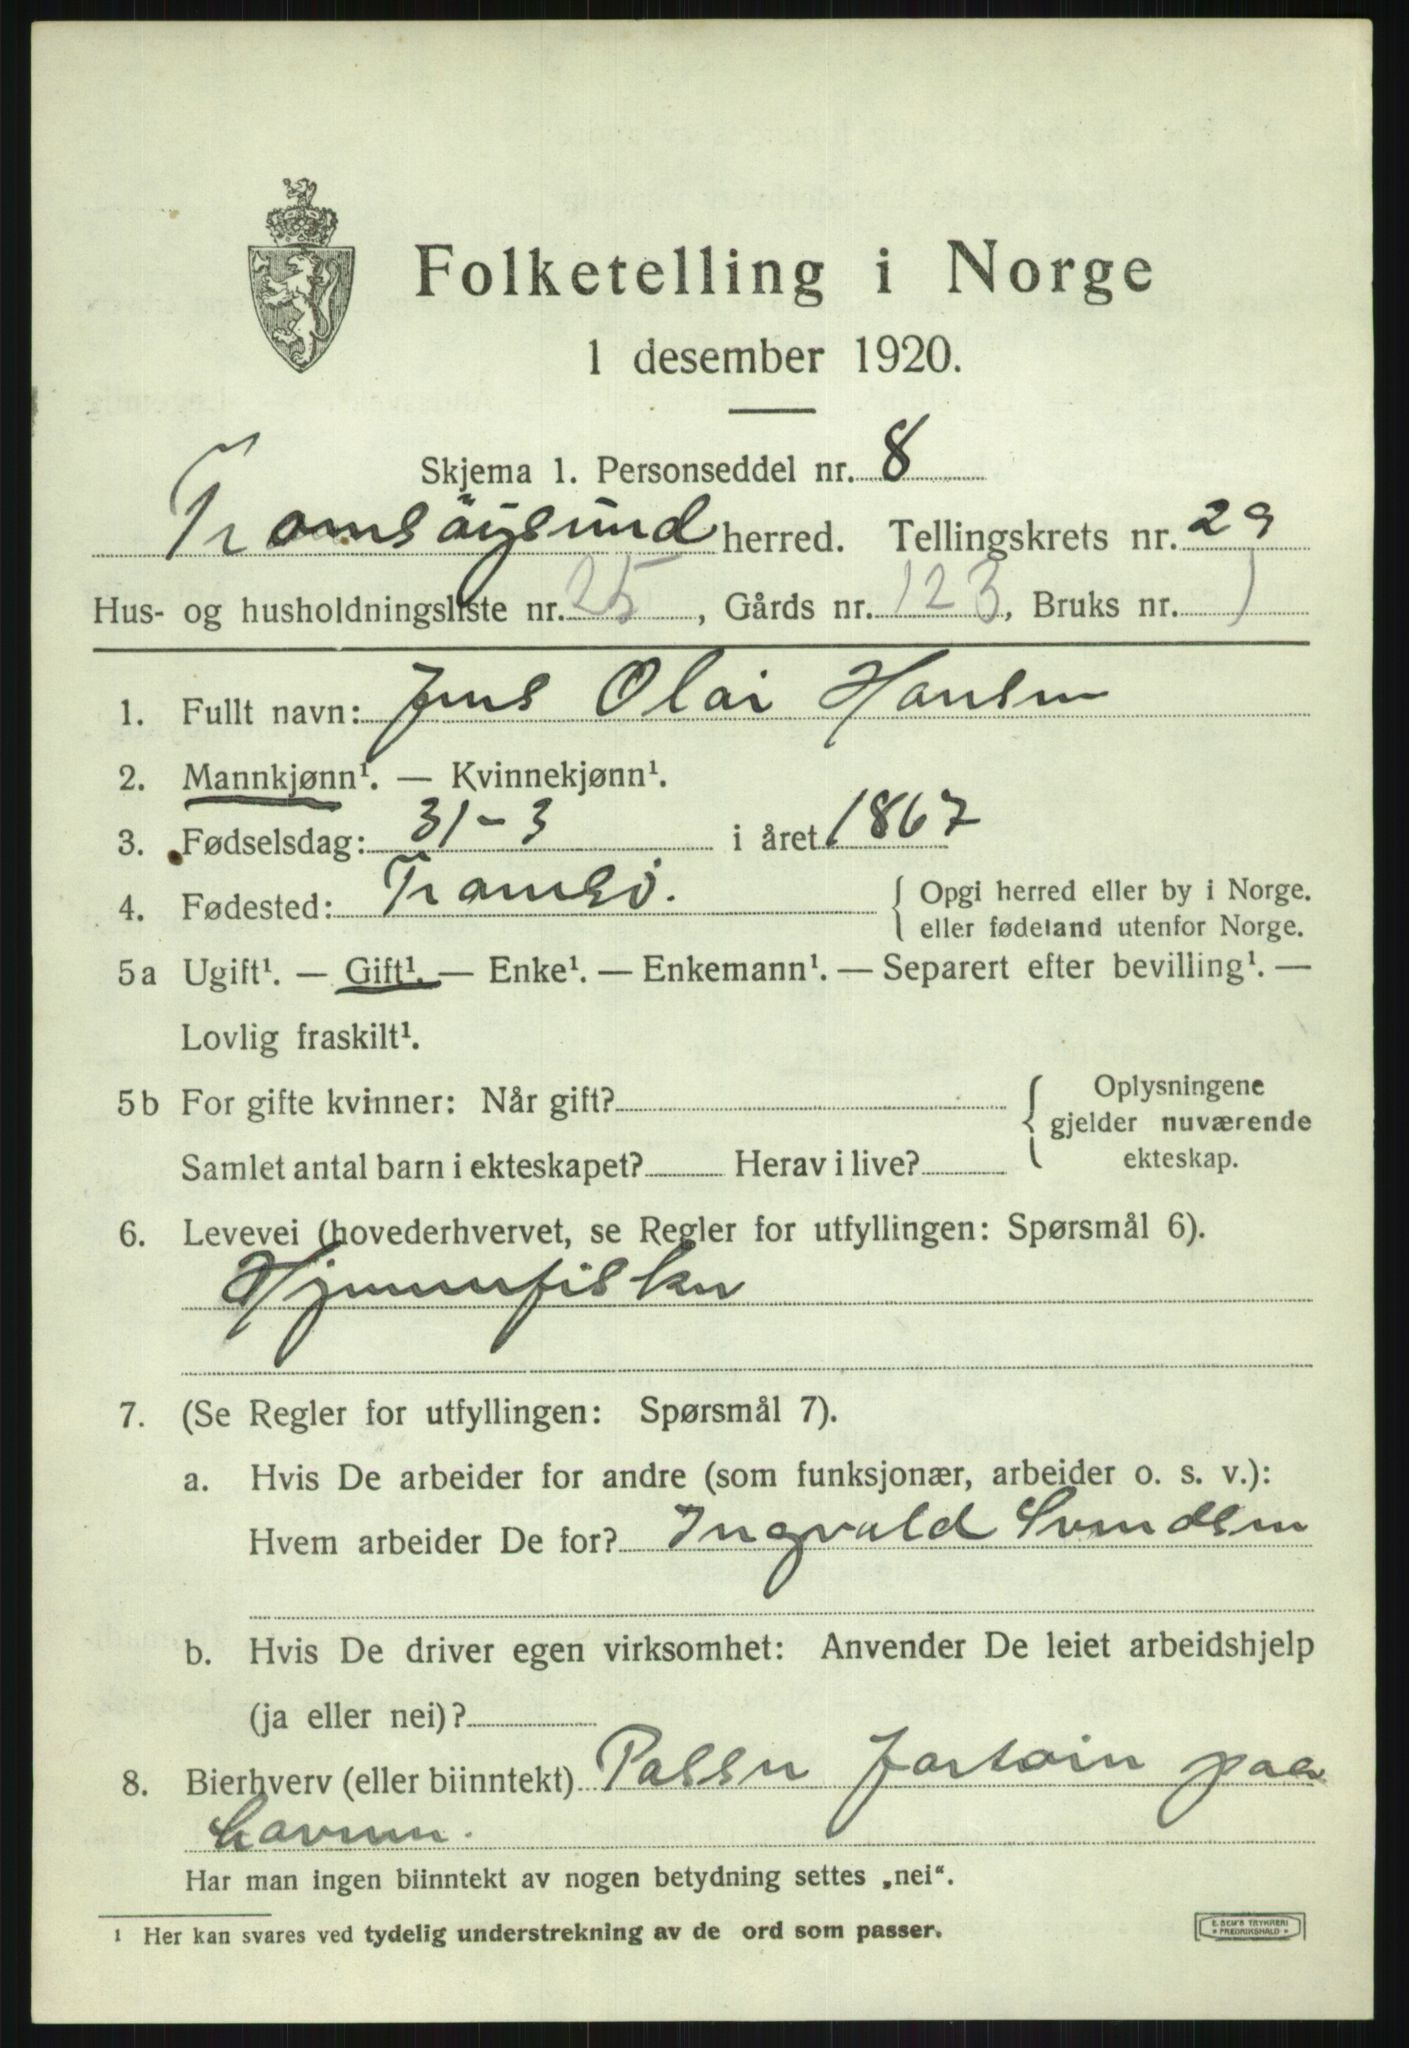 Folketelling i Norge
1 desember 1920.
Skjema 1. Personseddel nr. 8
Tromsöysund herred. Tellingskrets nr. 29
Hus- og husholdningsliste nr. 25, Gårds nr. 123, Bruks nr. 1
1. Fullt navn: Jens Olai Hansen
2. Mannkjønn¹. — Kvinnekjønn¹.
3. Fødselsdag: 31-3 i året 1867
4. Fødested: Tromsö. { Opgi herred eller by i Norge.
eller fødeland utenfor Norge.
5a Ugift¹. — Gift¹. — Enke¹. — Enkemann¹. — Separert efter bevilling¹. —
Lovlig fraskilt¹.
5b For gifte kvinner: Når gift? { Oplysningene
gjelder nuværende
Samlet antal barn i ekteskapet? Herav i live? ekteskap.
6. Levevei (hovederhvervet, se Regler for utfyllingen: Spørsmål 6).
Hjemmefisker
7. (Se Regler for utfyllingen: Spørsmål 7).
a. Hvis De arbeider for andre (som funksjonær, arbeider o. s. v.):
Hvem arbeider De for? Ingvald Svendsen
b. Hvis De driver egen virksomhet: Anvender De leiet arbeidshjelp
(ja eller nei)?
8. Bierhverv (eller biinntekt) Passer paa
Har man ingen biinntekt av nogen betydning settes „nei“.
¹ Her kan svares ved tydelig understrekning av de ord som passer.
E. SEM'S TRYKKERI
* FREDRIKSHALD *